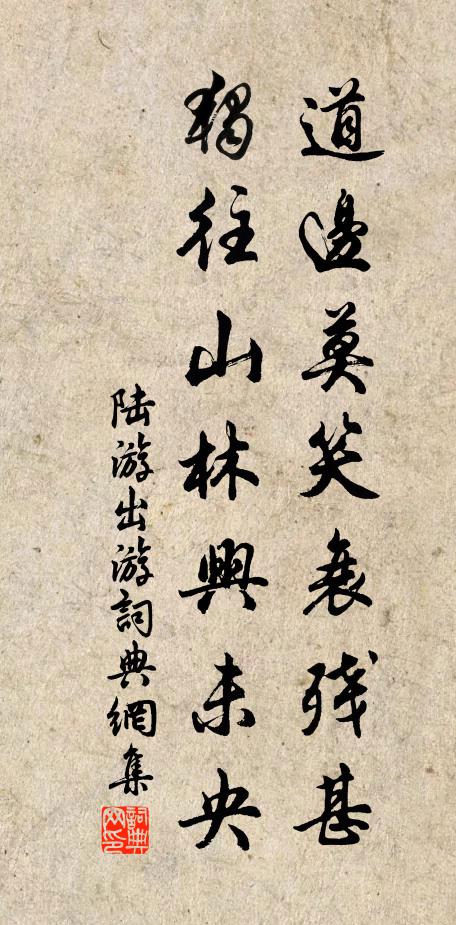 道邊莫笑衰残甚
獨往山林興未央
陆游出游詞典網集
詞典網印